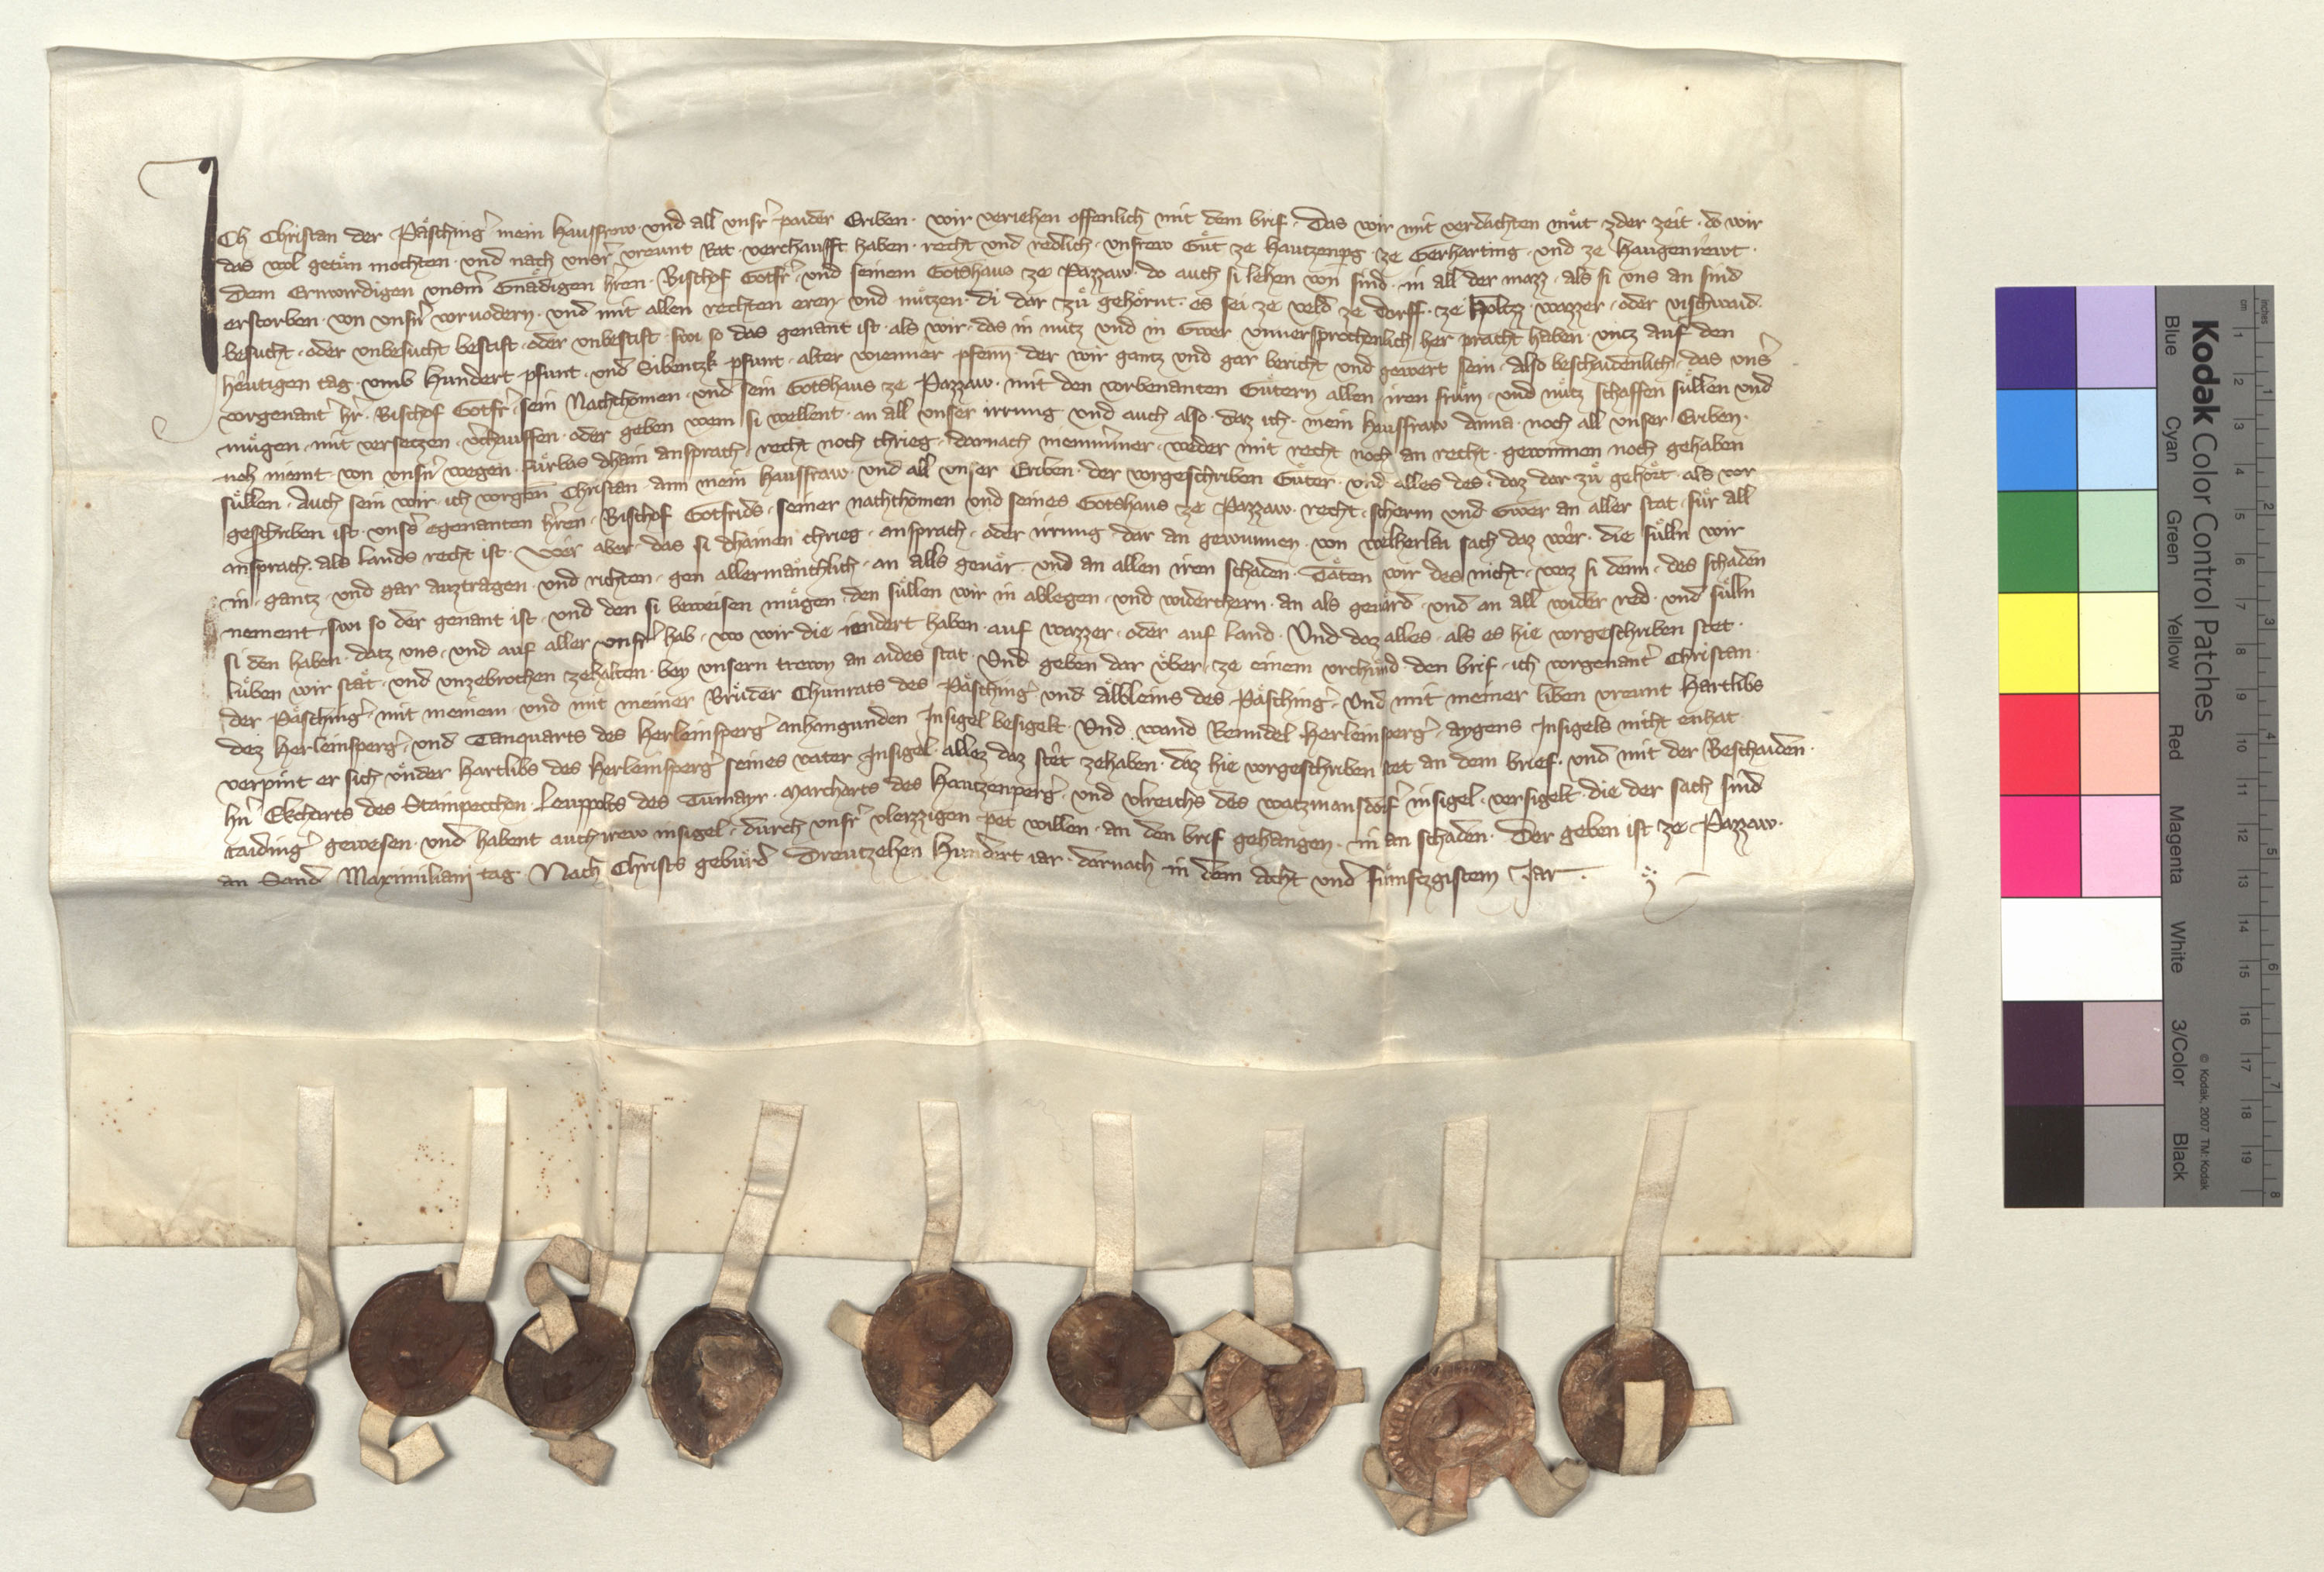 Ich Christan der Päsching' mein hausfrow und all unsr' paider Eriben · wir veriehen offenlich mit dem brif · Das wir mit verdachten müt · zder zeit · do wir
das wol getün mochten · und nach unsr' vreunt Rat · verchaufft haben · recht und redlich · unsrew Güt · ze hautzenpg · ze Gerharting · und ze haugenrewt ·
Dem Erwirdigen unsm' Gnädigen h'ren · Bischof Gotfr' · und seinem Gotshaus · ze Pazzaw · do auch si lehen von sind · in all der mazz · als si uns an sind
erstorben · von unsn' vorvodern · und mit allen rechten eren · und nützen · di dar zü gehörnt · es sei ze veld ze dorff · ze Holtzz · wazzer · oder vischwaid ·
besucht · oder unbesucht bestift · oder unbestift · swi so das genant ist · als wir · das in nutz und in Gwer unversprochenlich her pracht haben · untz auf den
hëutigen tag · umb Hundert pfunt · und Sibentzk pfunt · alter wienner pfenn · der wir gantz und gar bericht und gewert sein · Also beschaidenlich · das uns'
vorgenant' h'r · Bischof Gotfr' · sein Nachchomen · und sein Gotshaus ze Pazzaw · mit den vorbenanten Gütern allen · iren frum · und nütz schaffen süllen und
mügen · mit versetzen · v'chauffen · oder geben wem si wellent · an all unser irrung und auch also · daz ich · mein hausfraw Anna · noch all unser Eriben ·
noh niemt · von unsn' wegen · fürbas dhain ansprach · recht noch chrieg · darnach nimm'mer · weder mit recht noch an recht · gewinnen noch gehaben
süllen · Auch sein wir · ich vorgen' Christan · ann mein hausfraw · und all unser Eriben · der vorgeschriben Güter · und alles des · daz dar zü gehört · als vor
geschriben ist · uns's egenanten h'ren · Bischof Gotfrids · seiner nachchomen und seines Gotshaus ze Pazzaw · recht · scherm und Gwer an aller stat · für all
ansprach · als lands recht ist · Wër aber · das si dhainen chrieg · ansprach · oder irrung dar an gewunnen · von welherlai sach daz wër · die sülln wir
in · gantz · und gar auztragen · und richten · gen allermänchlich · an alls gevär · und an allen iren schaden · Täten wir des nicht · waz si denn · des schaden
nement · swi so der genant ist · und den si beweisen mügen · den süllen wir in ablegen · und widerchern · an als gevärd · und an all wider red · und sülln
si den haben · datz uns · und auf aller unsr' hab · wo wir die iendert haben · auf wazzer · oder auf land · Und daz alles · als es hie vorgeschriben stet ·
lüben wir stät · und unzebrochen zehalten · bey unsern trewn an aides stat · Und geben dar über · ze einem urchünd · den brif · ich vorgenant' Christan ·
der Päsching' · mit meinem · und mit meiner Brüder Chunrats des Päsching' und Älbleins des Päsching' · Und mit meiner liben vreunt Hartlibs
dez Herleinsperg' · und Tanquarts des Herleinsperg' anhangunden Insigel besigelt · Und wand Reundel Herleinsperg' · aygens Insigels nicht enhat
verpint er sich under Hartlibs des Herleinsperg' seines vater Insigel · allez daz stët zehaben · daz hie vorgeschriben stet an dem brief · und mit der Beschaiden ·
h'n Ekcharts des Stainpecchen · Leuppolts des Tumayr · Marcharts des Hautzenperg' · und Ulreichs des watzmansdorf' insigel · versigelt · die der sach sind
taiding' gewesen · und habent auch irew insigel · durch unsr' vleizzigen pet willen · an den brif gehangen · in an schaden · Der geben ist ze Pazzaw ·
an Sand Maximiliani tag · Nach Christs gebürd Dreutzehen Hundert iar · darnach in dem Acht und fünftzgistem Jar ·
Kodak Color Control Patches
Blue Cyan Green Yellow Red Magenta White 3/Color Black
© Kodak, 2007 TM: Kodak
cm 1 2 3 4 5 6 7 8 9 10 11 12 13 14 15 16 17 18 19
inches 1 2 3 4 5 6 7 8